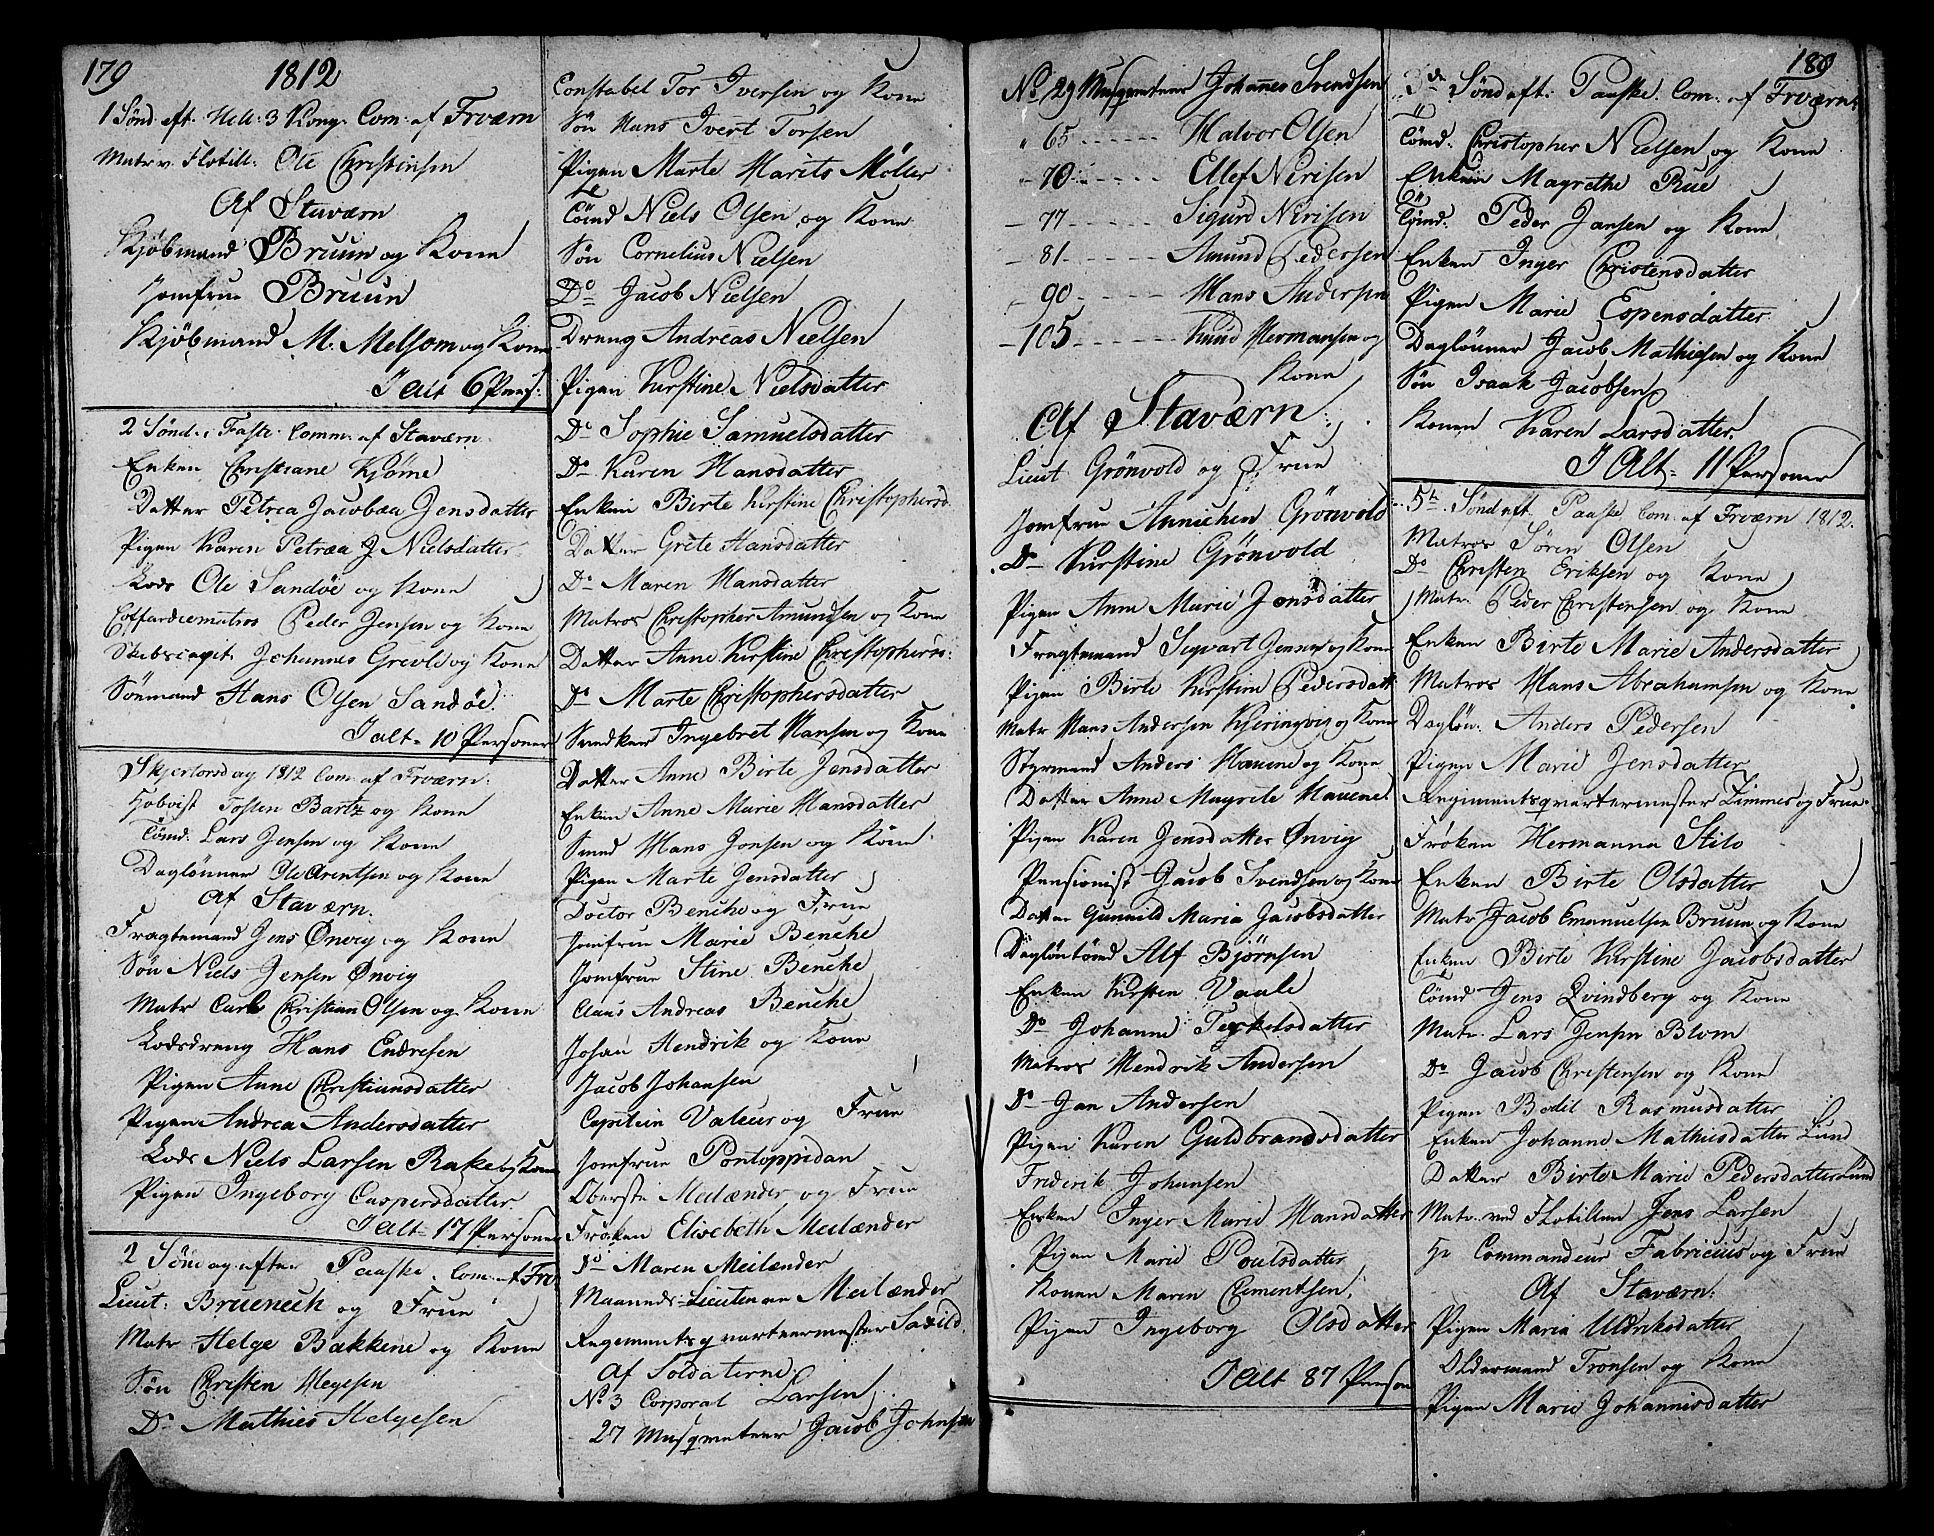 179
1812
1 Sønd. eft. Hell: 3 Kong. Com: af Frværn
Matr v. Flotill: Ole Christensen
Af Staværn
Kjøbmand Bruun og Kone
Jomfrue Bruun
Kjøbmand M. Melsom og Kone
I alt 6 Pers:
2 Sønd. i Faste. Comm: af Staværn.
Enken Christiane Kjørne
Datter Petrea Jacobæa Jensdatter
Pigen Karen Petræa J Nielsdatter
Lods Ole Sandøe og Kone
Coffardiematros Peder Jensen og Kone
Skibscapit. Johannes Grevle og Kone
Sønmand Hans Olsen Sandøe.
I alt 10 Personer
Skjertorsdag 1812 Com: af Frværn:
Tosten Bartz og Kone
Tømd: Lars Jensen og Kone
Daglønner Ole Arentsen og Kone
Af Staværn.
Fragtemand Jens Ønvig og Kone
Søn Niels Jensen Ønvig
Matr Carl Christian Olsen og Kone
Lodsdreng Hans Endresen
Pigen Anne Christiansdatter
Pigen Andrea Andersdatter
Lods Niels Larsen Rake og Kone
Pigen Ingeborg Caspersdatter.
I alt 17 Personer
2 Søndag efter Paaske. Com: af Frv
Lieut: Bruenech og Frue
Matr Helge Bakkene og Kone
Søn Christen Hegesen
Do Mathies Helgesen
Constabel Tor Iversen og Kone
Søn Hans Ivert Torsen
Pigen Marte Marits Møller
Tømd Niels Olsen og Kone
Søn Cornelius Nielsen
Do Jacob Nielsen
Dreng Andreas Nielsen
Pigen Kirstine Nielsdatter
Do Sophie Samuelsdatter
Do Karen Hansdatter
Enken Birte Kirstine Christophersd.
Datter Grete Hansdatter
Do Maren Hansdatter
Matros Christopher Amundsen og Kone
Datter Anne Kirstine Christophers:
Do Marte Christophersdatter
Snedker Ingebret Hansen og Kone
Datter Anne Birte Jensdatter
Enken Anne Marie Hansdatter
Smed Hans Jonsen og Kone
Pigen Marte Jensdatter
Doctor Benche og Frue
Jomfrue Marie Benche
Jomfrue Stine Benche
Claus Andreas Benche
Johan Hendrik og Kone
Jacob Johansen
Capitein Valeur og Frue
Jomfrue Pontoppidan
Oberste Meilænder og Frue
Frøken Elisebeth Meilænder
Do Maren Meilænder
Maaneds-Lieutenan Meilænder
Regementsqvarteermester Saxild.
Af Soldaterne
No 3 Corporal Larsen
27 Musqveteer Jacob Johnsen
No 29 Musqveteer Johannes Svendsen
" 65 - - - - - Halvor Olsen
- 70 - - - - - Ellef Nirisen
- 77 - - - - - Sigurd Nirisen
- 81 - - - - - Amund Pedersen
- 90 - - - - - Hans Andersen
- 105 - - - - - Knud Hermansen og
Kone
Af Staværn:
Lieut Grönvold og Frue
Jomfrue Annichen Grönvold
Do Kirstine Grönvold
Pigen Anne Marie Jensdatter
Fragtemand Segvart Jenny og Kone
Pigen Birte Kirstine Pedersdatt
Matr Hans Andersen Kjeringvig og Kone
Styrmand Anders Hauene og Kone
Datter Anne Magrete Hauene
Pigen Karen Jensdatter Ønvig
Pensionist Jacob Svendsen og Kone
Datter Gunnild Maria Jacobsdatter
Dagløntømd Alf Bjørnsen
Enken Kirsten Vaale
Do Johanne Terkelsdatter
Matros Hendrik Andersen
Do Jan Andersen
Pigen Karen Guldbrandsdatter
Friderik Johansen
Enken Inger Marie Hansdatter
Pigen Marie Poulsdatter
Konen Maren Clementsen
Pigen Ingeborg Olsdatter
I Alt 87 Person
180
3de Sønd eft. Paaske. Com: af Frværn:
Tømd. Christopher Nielsen og Kone
Enken Magrethe Rue
Tømd. Peder Jansen og Kone
Enken Inger Christensdatter
Pigen Marie Espensdatter
Daglønner Jacob Mathiesen og Kone
Søn Isaak Jacobsen
Konen Karen Larsdatter.
I Alt 11 Personer
5te Sønd eft. Paaske Com: af Frværn 1812.
Matros Sören Olsen
Do Christen Eriksen og Kone
Matr. Peder Christensen og Kone
Enken Birte Marie Andersdatter
Matros Hans Abrahamsen og Kone
Dagløn. Anders Pedersen
Pigen Marie Jensdatter
Regimentsqvartermester Zimmer og Frue
Frøken Hermanna Stilo
Enken Birte Olsdatter
Matr Jacob Emanuelsen Bruun og Kone
Enken Birte Kirstine Jacobsdatter
Tømd Jens Qvindberg og Kone
Matr. Lars Jensen Blom
Do Jacob Christensen og Kone
Pigen Bodil Rasmusdatter
Enken Johanne Mathisdatter Lund
Datter Birte Marie Pedersdatter Lund
Matr. ved Flotillen Jens Larsen
Hr Commandeur Fabricius og Frue
Af Staværn:
Pigen Maria Uldriksdatter
Oldermand Tronsen og Kone
Pigen Marie Johannisdatter